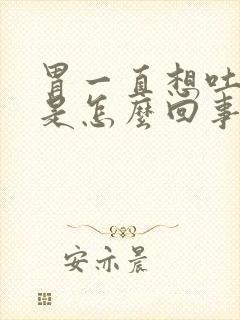 胃一直想吐
是怎麼回事
安亦晨